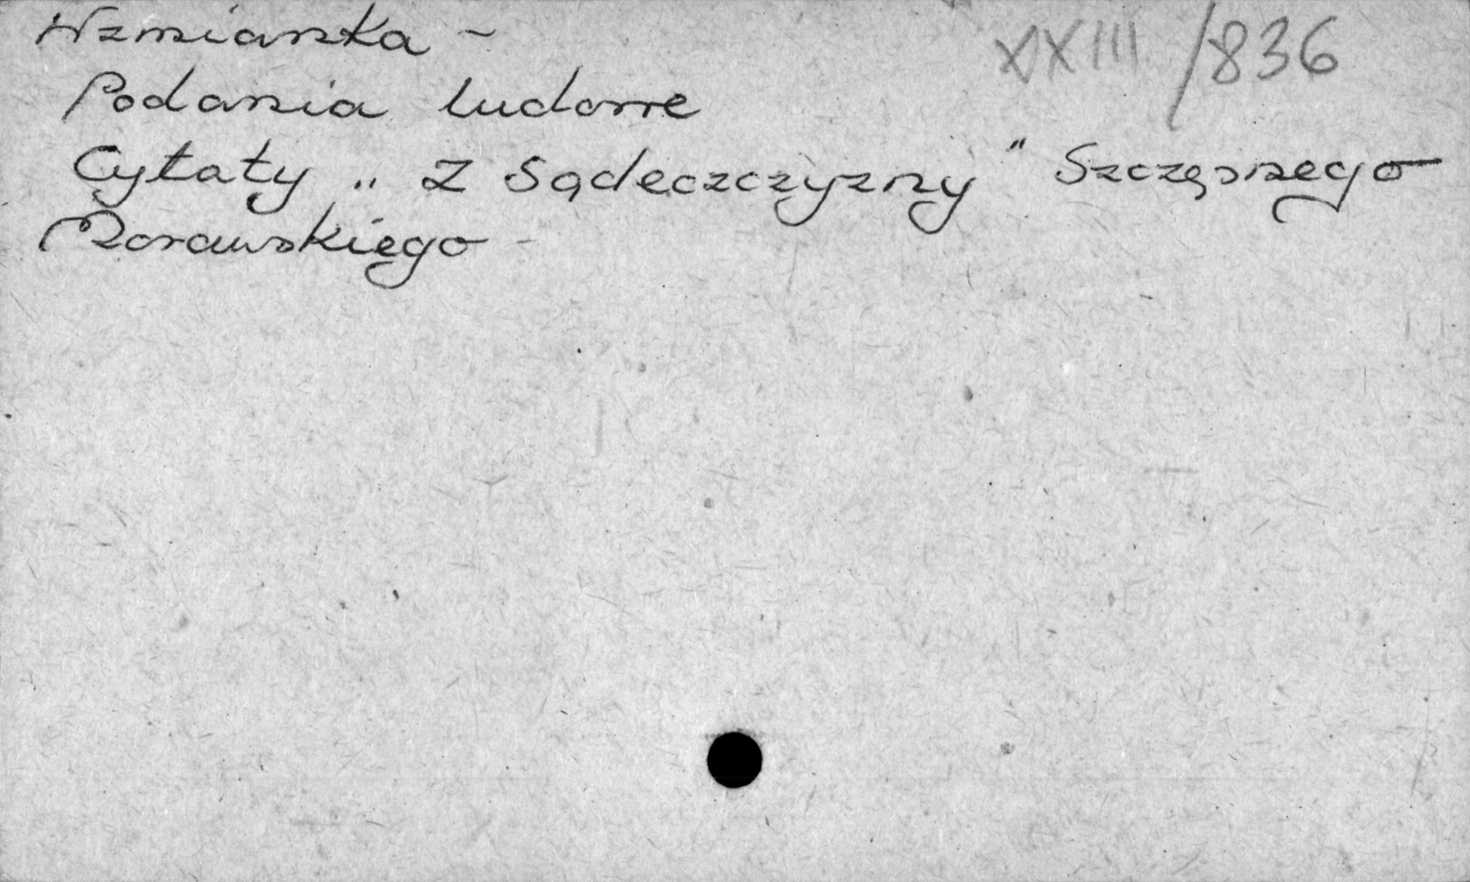 Wzmianka -
XXIII/836
Podania ludowe
Cytaty „Z Sądeczczyzny" Szczęsnego
Morawskiego -